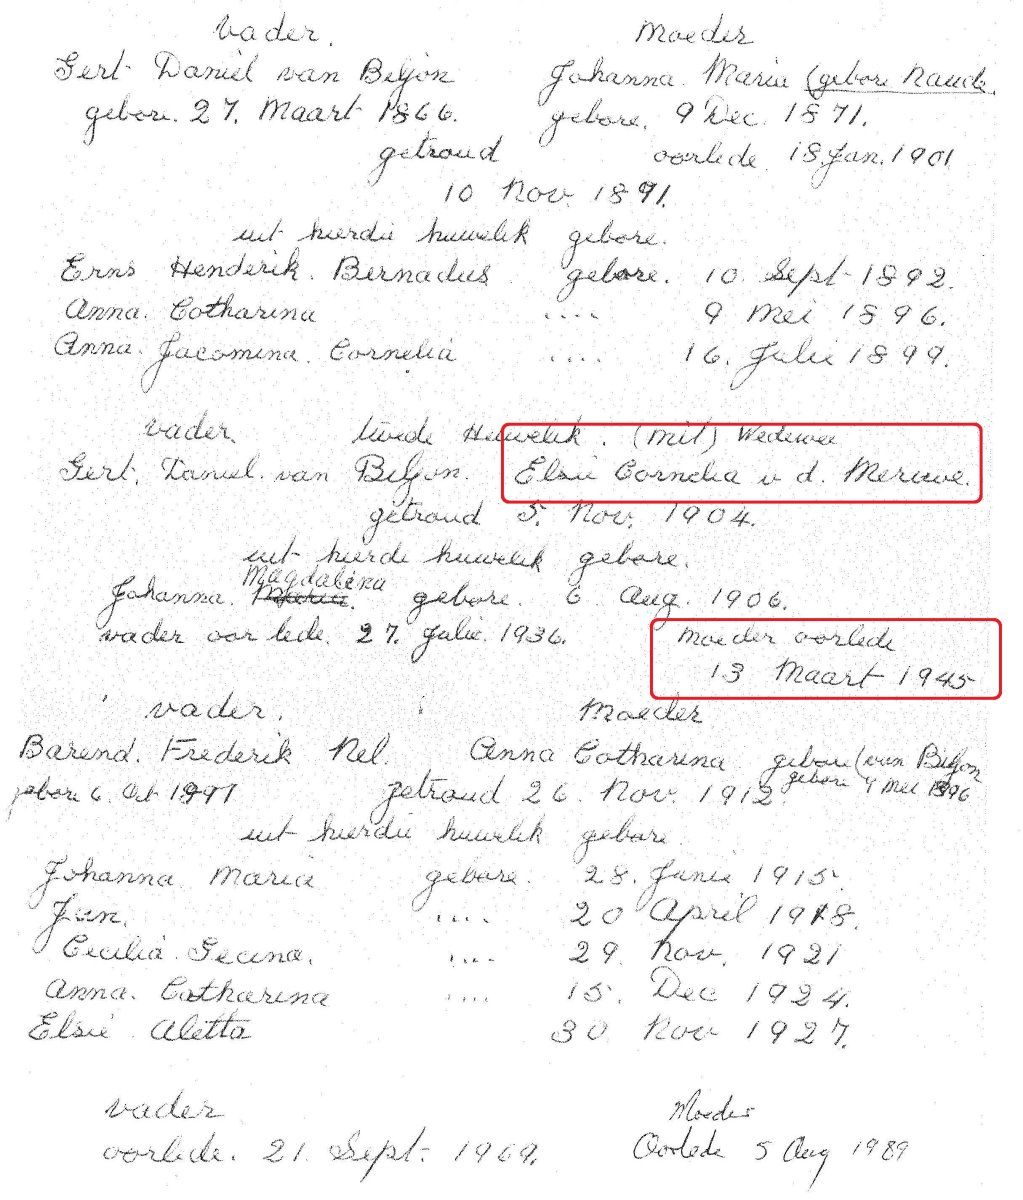 vader. Moeder
Gert Daniel van Biljon Johanna Maria (gebore Naude.
gebore. 27. Maart 1866. gebore. 9 Dec. 1871.
getroud oorlede 18 Jan. 1901
10 Nov. 1891.
uit hierdie huwelik gebore.
Erns Henderik. Bernadus gebore. 10 Sept 1892.
Anna. Catharina .... 9 Mei 1896.
Anna. Jacomina. Cornelia .... 16. Julie 1899.
vader. twede Huwelik. (mit) Wedewee
Gert. Daniel. van Biljon. Elsie Cornelia v d. Merwe.
getroud 5. Nov. 1904.
uit hierdie huwelik gebore.
Magdalena
Johanna. Maria. gebore. 6 Aug. 1906.
vader oorlede. 27. Julie. 1936. Moeder oorlede
13 Maart 1945
vader. Moeder
Barend. Frederik Nel. Anna Catharina gebore (van Biljon
gebore 9 Mei 1896
gebore 6. Oct getroud 26. Nov. 1912.
uit hierdie huwelik gebore.
Johanna Maria gebore. 28. Junie 1915.
Jan. .... 20 April 1918.
Cecilia Gecina. .... 29 Nov. 1921
Anna. Catharina .... 15. Dec 1924.
Elsie Aletta 30 Nov 1927.
vader Moeder
oorlede. 21. Sept. 1969. Oorlede 5 Aug 1989